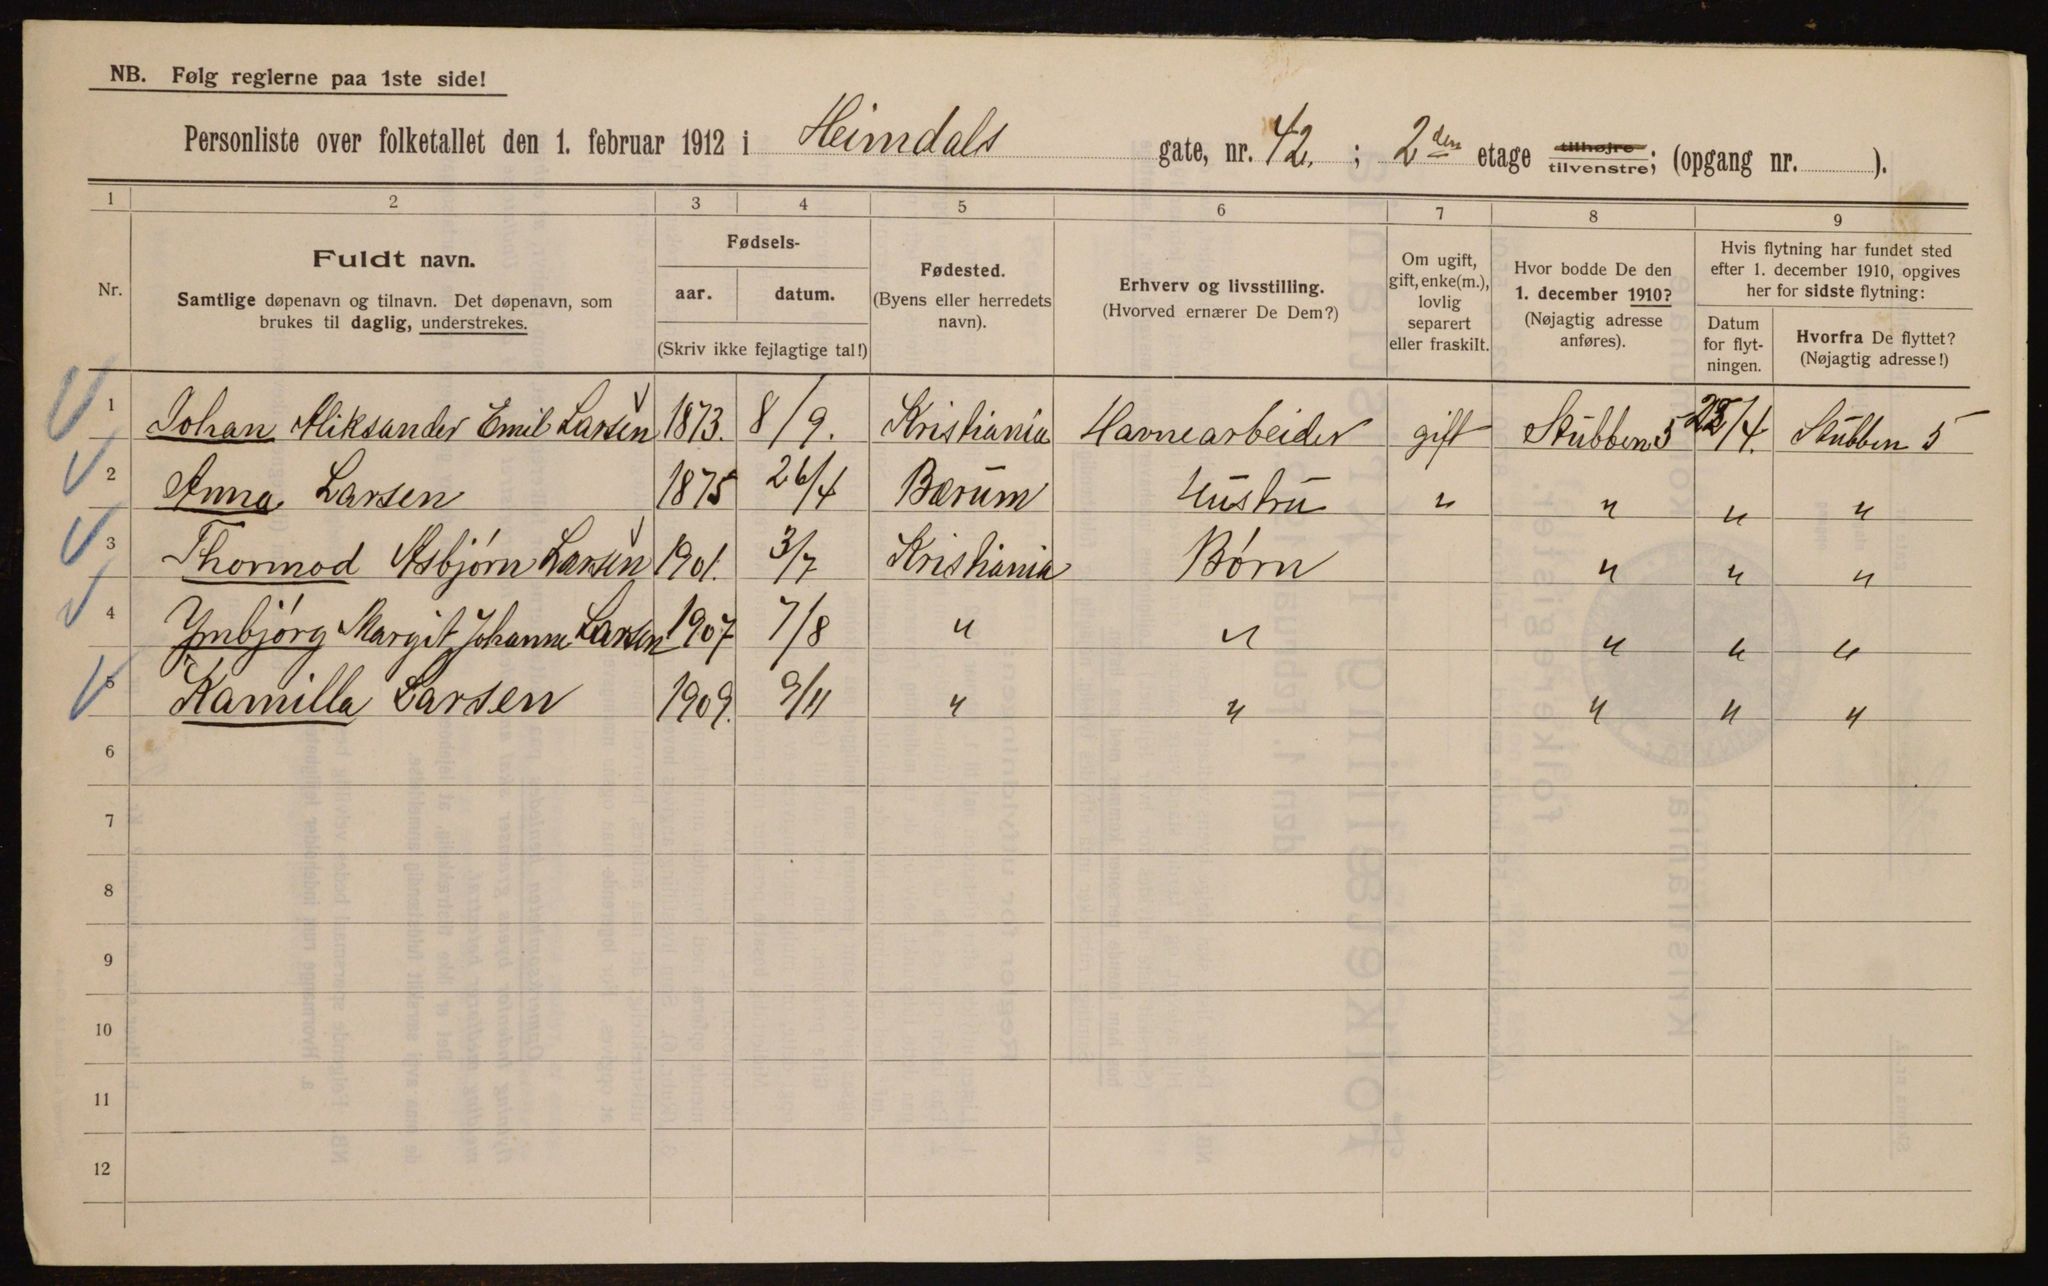 NB. Følg reglerne paa 1ste side!
Personliste over folketallet den 1. februar 1912 i Heimdals gate, nr. 42. ; 2den etage tilhøjre tilvenstre; (opgang nr. ).
1 2 3 4 5 6 7 8 9
Nr.
Fuldt navn.
Samtlige døpenavn og tilnavn. Det døpenavn, som
brukes til daglig, understrekes.
Fødsels-
aar. datum.
(Skriv ikke fejlagtige tal!)
Fødested.
(Byens eller herredets
navn).
Erhverv og livsstilling.
(Hvorved ernærer De Dem?)
Om ugift,
gift, enke(m.),
lovlig
separert
eller fraskilt.
Hvor bodde De den
1. december 1910?
(Nøjagtig adresse
anføres).
Hvis flytning har fundet sted
efter 1. december 1910, opgives
her for sidste flytning:
Datum
for flyt-
ningen.
Hvorfra De flyttet?
(Nøjagtig adresse!)
1 Johan Aliksander Emil Larsen 1873. 8/9. Kristiania Havnearbeider gift Stubben 5 /4. Stubben 5
2 Anna Larsen 1875 26/4 Bærum Hustru " " " "
3 Thormod Asbjørn Larsen 1901. 3/7 Kristiania Børn " " "
4 Ymbjørg Margit Johanne Larsen 1907 7/8 " " " " "
5 Kamilla Larsen 1909. 9/11 " " " " "
6
7
8
9
10
11
12